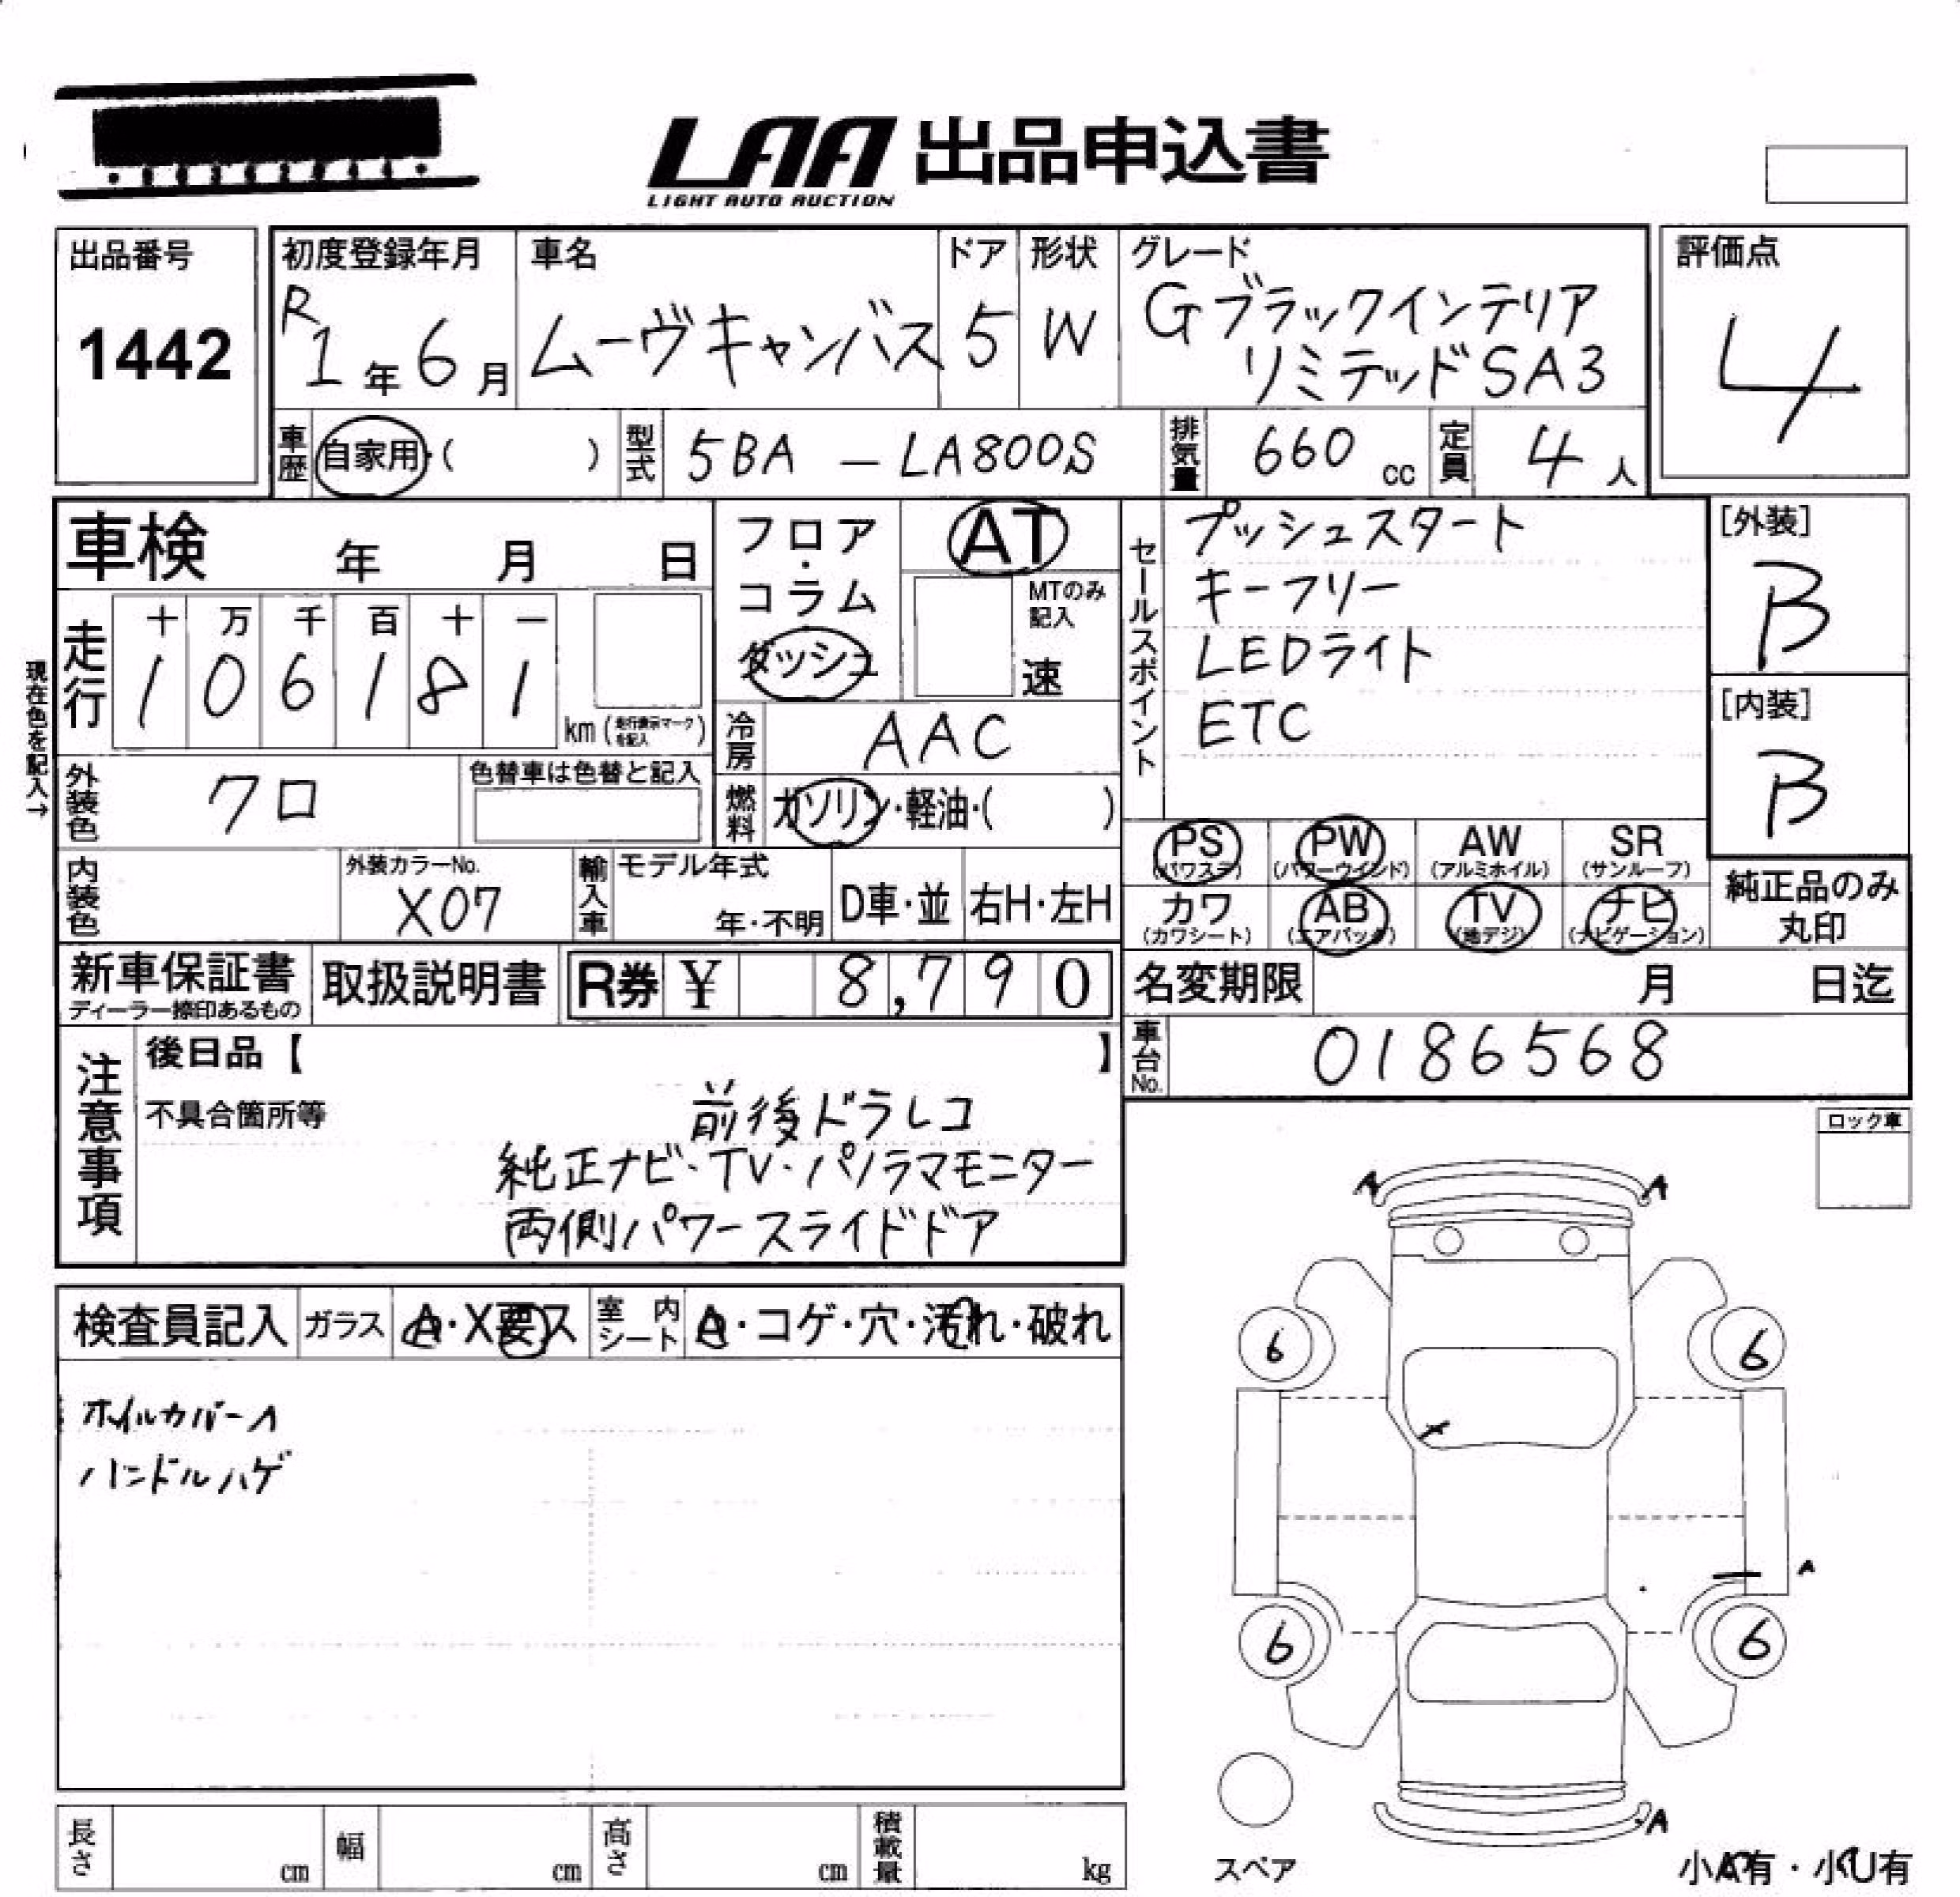 LAA 出品申込書
LIGHT AUTO AUCTION
出品番号
1442
初度登録年月
R1年6月
車名
ムーヴキャンバス
ドア
5
形状
W
グレード
Gブラックインテリア
リミテッドSA3
評価点
4
車歴
自家用・( )
型式
5BA - LA800S
排気量
660 cc
定員
4人
車検 年 月 日
フロア・コラム
ダッシュ
AT
MTのみ記入
速
セールスポイント
プッシュスタート
キーフリー
LEDライト
ETC
[外装]
B
[内装]
B
現在色を記入→
走行
十 万 千 百 十 一
1 0 6 1 8 1
km (走行表示マークを記入)
冷房
AAC
外装色
クロ
色替車は色替と記入
燃料
ガソリン・軽油・( )
PS (パワステ)
PW (パワーウインド)
AW (アルミホイル)
SR (サンルーフ)
カワ (カワシート)
AB (エアバック)
TV (地デジ)
ナビ (ナビゲーション)
純正品のみ丸印
内装色
外装カラーNo.
X07
輸入車
モデル年式
年・不明
D車・並
右H・左H
新車保証書
ディーラー捺印あるもの
取扱説明書
R券 ¥ 8,790
名変期限 月 日迄
車台No.
0186568
注意事項
後日品【 】
不具合箇所等
前後ドラレコ
純正ナビ・TV・パノラマモニター
両側パワースライドドア
ロック車
検査員記入
ガラス
A・X要ス
室内シート
A・コゲ・穴・汚れ・破れ
ホイルカバーA
ハンドルハゲ
A A
6 6
A
6 6
A
スペア
小A有・小U有
長さ cm
幅 cm
高さ cm
積載量 kg